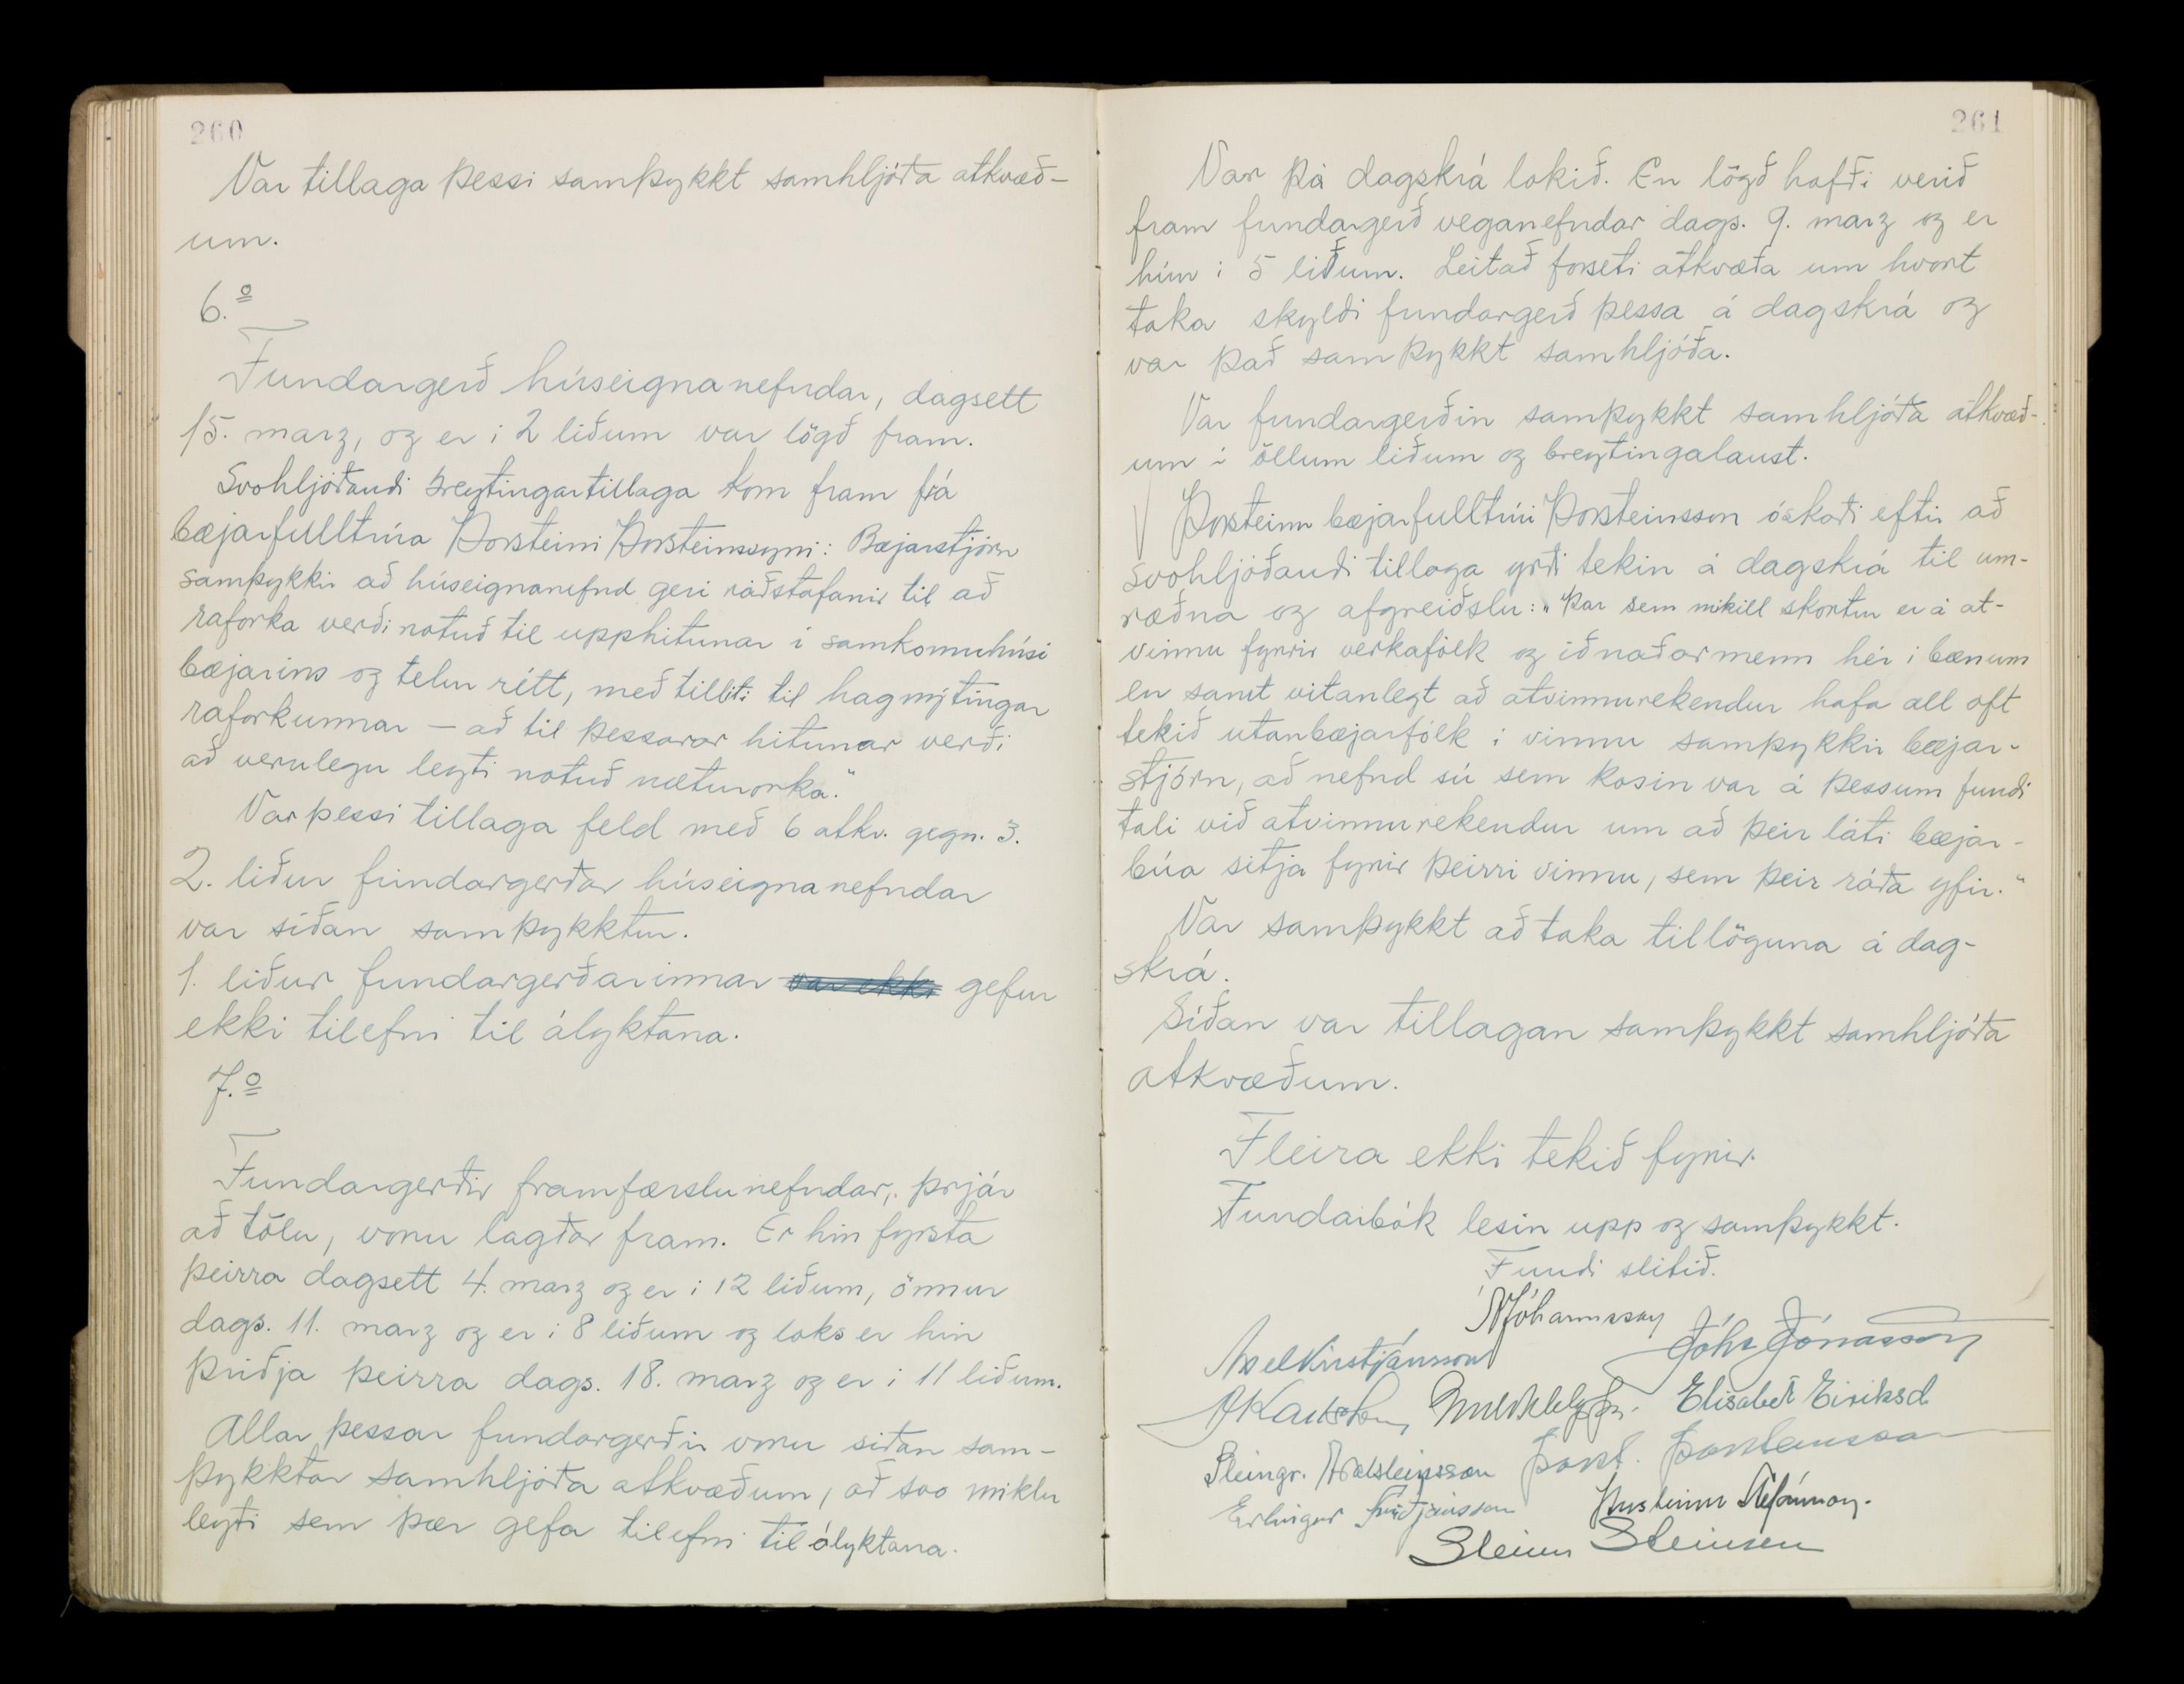 260
Var tillaga þessi samþykkt samhljóða atkvæð-
um.
6.º
Fundargerð húseignanefndar, dagsett
15. marz, og er i 2 liðum var lögð fram.
Svohljóðandi breytingartillaga kom fram frá
bæjarfulltrúa Þorsteini Þorsteinssyni: Bæjarstjórn
samþykkir að húseignanefnd geri ráðstafanir til að
raforka verði notuð til upphitunar i samkomuhúsi
bæjarins og telur rétt, með tilliti til hagnýtingar
raforkunnar – að til þessarar hitunar verði
að verulegu leyti notuð næturorka."
Var þessi tillaga feld með 6 atkv. gegn. 3.
2. liður fundargerðar húseignanefndar
var síðan samþykktur.
1. liður fundargerðarinnar var ekki gefur
ekki tilefni til ályktana.
7.º
Fundargerðir framfærslunefndar, þrjár
að tölu, voru lagðar fram. Er hin fyrsta
þeirra dagsett 4. marz og er i 12 liðum, önnur
dags. 11. marz og er i 8 liðum og loks er hin
þriðja þeirra dags. 18. marz og er i 11 liðum.
Allar þessar fundargerðir voru síðan sam-
þykktar samhljóða atkvæðum, að svo miklu
leyti sem þær gefa tilefni til ályktana.
261
Var þá dagskrá lokið. En lögð hafði verið
fram fundargerð veganefndar dags. 9. marz og er
hún i 5 liðum. Leitað forseti atkvæða um hvort
taka skyldi fundargerð þessa á dagskrá og
var það samþykkt samhljóða.
Var fundargerðin samþykkt samhljóða atkvæð-
um i öllum liðum og breytingalaust.
Þorsteinn bæjarfulltrúi Þorsteinsson óskaði eftir að
svohljóðandi tillaga yrði tekin á dagskrá til um-
ræðna og afgreiðslu: "Þar sem mikill skortur er á at-
vinnu fyrir verkafólk og iðnaðarmenn hér i bænum
en samt vitanlegt að atvinnurekendur hafa all oft
tekið utanbæjarfólk i vinnu samþykkir bæjar-
stjórn, að nefnd sú sem kosin var á þessum fundi
tali við atvinnurekendur um að þeir láti bæjar-
búa sitja fyrir þeirri vinnu, sem þeir ráða yfir."
Var samþykkt að taka tillöguna á dag-
skrá.
Síðan var tillagan samþykkt samhljóða
atkvæðum.
Fleira ekki tekið fyrir.
Fundarbók lesin upp og samþykkt.
Fundi slitið.
Jóhannsson
Axel Kristjánsson Jóhs Jónasson
Elisabet Eiriksd.
Steingr. Aðalsteinsson Þorst. Þorsteinsson
Erlingur Friðjónsson Þorsteinn Stefánsson.
Steinn Steinsen